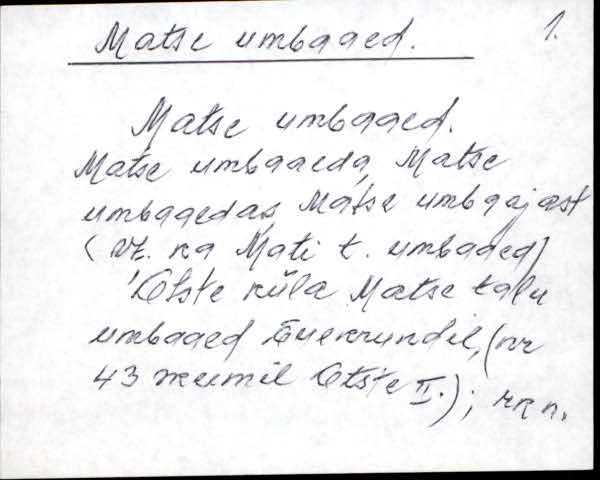 Matse umbaaed. 1.
Matse umbaaed.
Matse umbaaeda, Matse
umbaaedas, Matse umbajast
(Vt. ka Mati t. umbaaed)
Otste küla Matse talu
umbaaed õuekrundil, (nr
43 skeemil Otste II.); rkn.